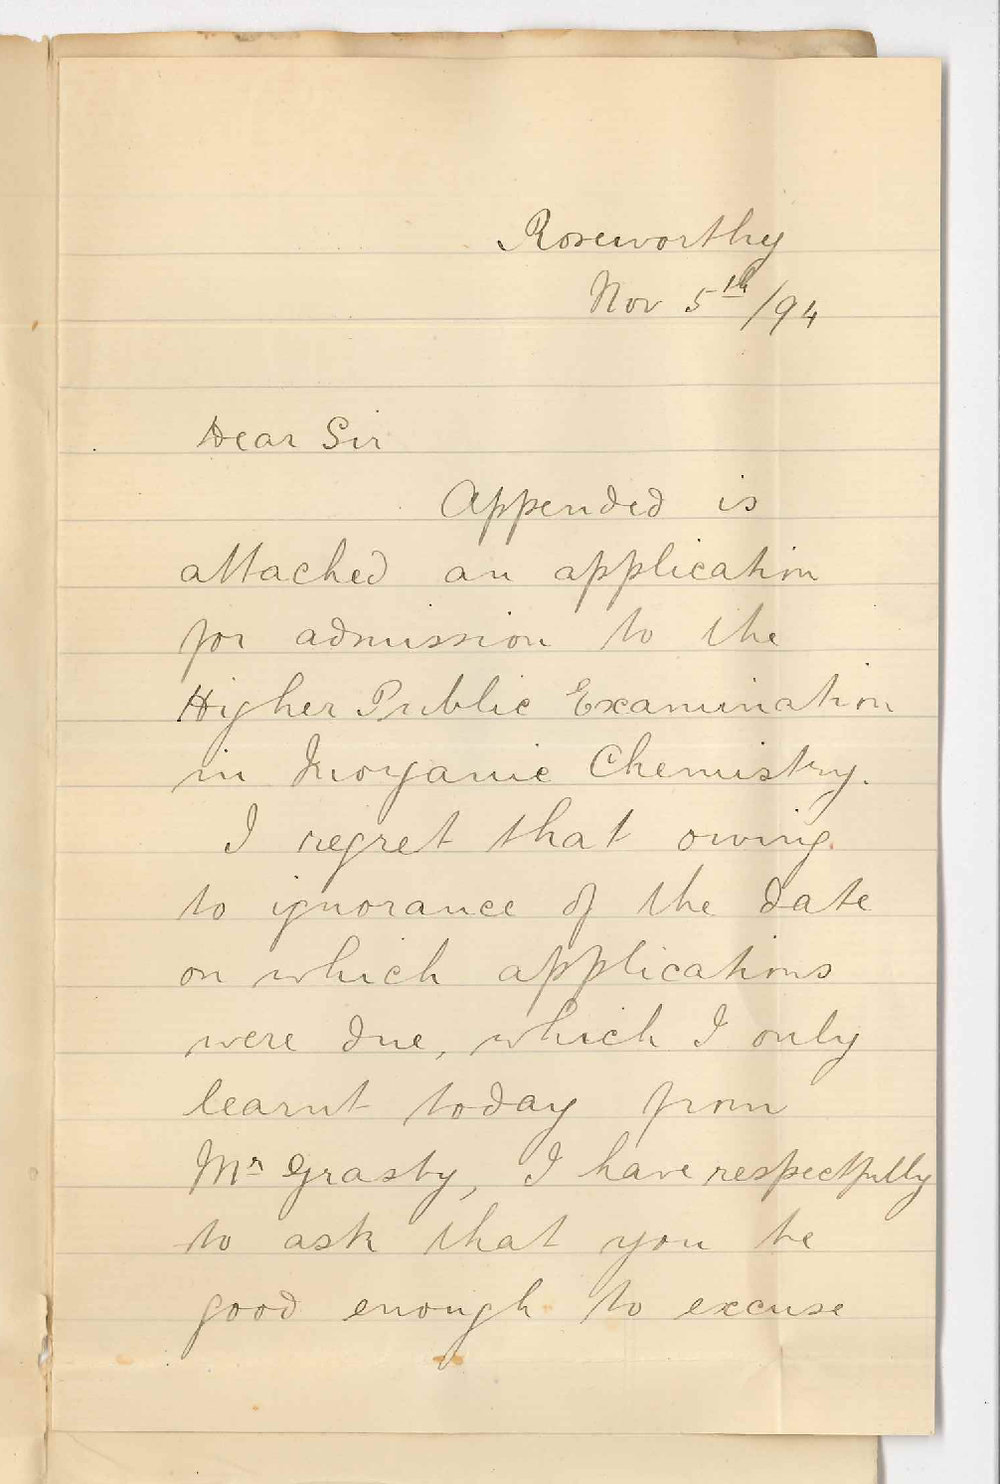 Roseworthy
Nov 5th/94
Dear Sir
Appended is
attached an application
for admission to the
Higher Public Examination
in Inorganic Chemistry.
I regret that owing
to ignorance of the date
on which applications
were due, which I only
learnt today from
Mr Grasby, I have respectfully
to ask that you be
good enough to excuse